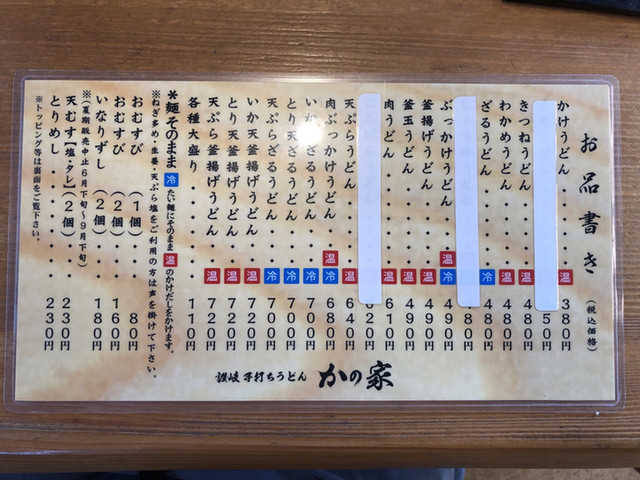 お品書き (税込価格)
かけうどん・・・・温 380円
50円
きつねうどん・・・温 480円
わかめうどん・・・温 480円
ざるうどん・・・・冷 480円
ぶっかけうどん・・温冷 490円
釜揚げうどん・・・温 490円
釜玉うどん・・・・温 490円
肉うどん・・・・・温 610円
20円
天ぷらうどん・・・温 640円
肉ぶっかけうどん・温冷 680円
いか ざるうどん・・冷 700円
とり天ざるうどん・・冷 700円
天ぷらざるうどん・・冷 700円
いか天釜揚げうどん・温 720円
とり天釜揚げうどん・温 720円
天ぷら釜揚げうどん・温 720円
各種大盛り・・・・・110円
*麺そのまま 冷たい麺にそのまま温のかけだしをかけます。
※ねぎ多め・生姜・天ぷら塩をご利用の方は声を掛けて下さい。
おむすび (1個)・・・80円
おむすび (2個)・・・160円
いなりずし (2個)・・・180円
※(夏期販売中止6月下旬〜9月下旬)
天むす【塩・タレ】(2個)・230円
とりめし・・・・・・230円
※トッピング等は裏面をご覧下さい。
讃岐手打ちうどん かの家